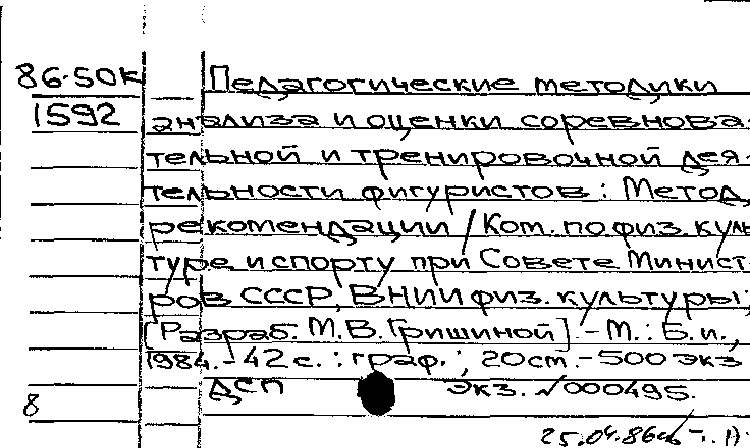 86-50К Педагогические методики
1592 анализа и оценки соревнова-
тельной и тренировочной дея-
тельности фигуристов : Метод.
рекомендации / Ком. по физ. куль-
туре и спорту при Совете Минист-
ров СССР, ВНИИ физ. культуры;
[Разраб. М.В. Гришиной]. - М.: Б.и.,
1984. - 42 с. : граф. ; 20 см. - 500 экз
ДСП экз. √000495.
8
25.04.86